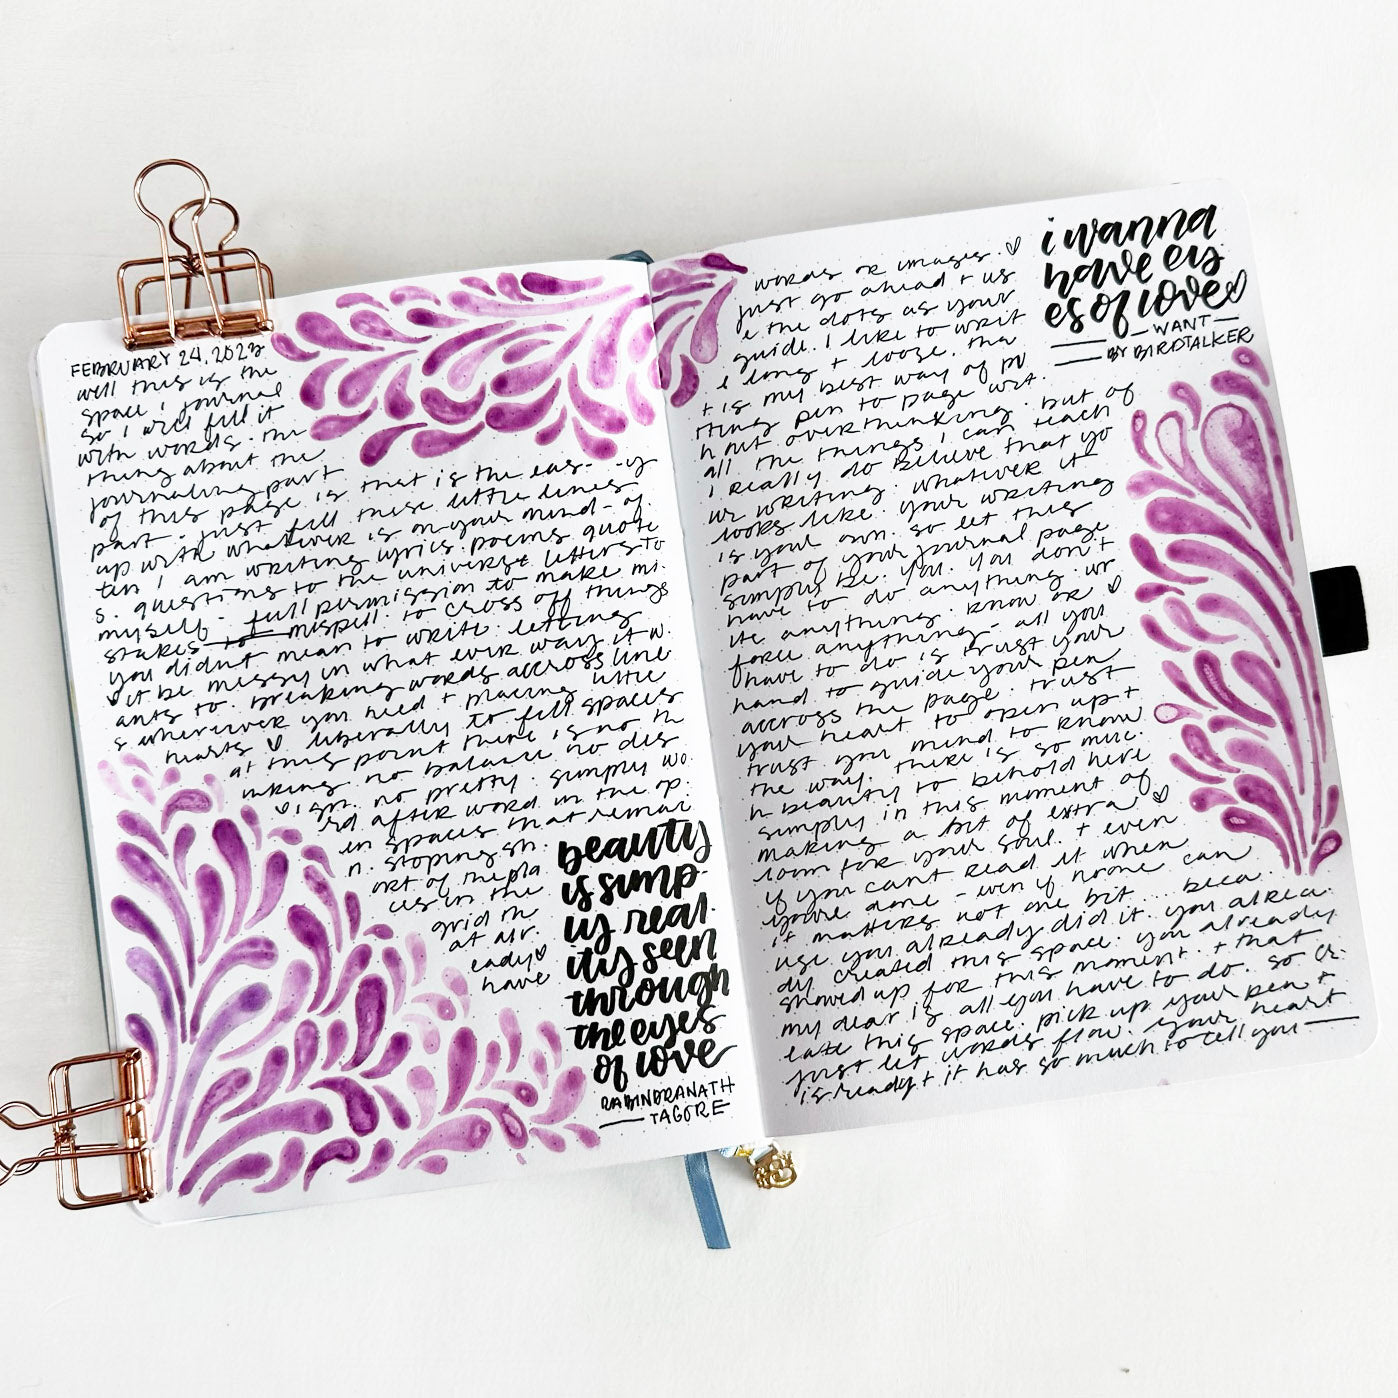 FEBRUARY 24, 2023
well this is the
space i journal
so i will fill it
with words. the
thing about the
journaling part
of this page is that is the eas- -y
part. just fill these little lines
up with whatever is on your mind- of
ten i am writing lyrics. poems. quote
s. questions to the universe letters to
myself- full permission to make mi.
stakes to misspell. to cross off things
you didnt mean to write. letting
it be messy in what ever way it w.
ants to. breaking words accross line
s wherever you need + placing little
hearts ♡ liberally to fill spaces
at this point there is no th
inking. no balance no des
♡ ign. no pretty. simply wo.
rd after word in the op.
en spaces that remai
n. stoping sh.
ort of the pla
ces in the
grid th
at alr.
eady♡
have
beauty
is simp-
ly real.
ity seen
through
the eyes
of love
RABINDRANATH
TAGORE
words or images. ♡
just go ahead + us
e the dots as your
guide. i like to writ
e long + loose. tha
t is my best way of pu
tting pen to page wit.
hout overthinking. but of
all the things i can teach
i really do believe that yo
ur writing. whatever it
looks like. your writing
is your own. so let this
part of your journal page
simply be. you. you don't
have to do anything. wr
ite anything. know or ♡
force anything- all you
have to do is trust your
hand to guide your pen
accross the page. trust
your heart to open up +
trust you mind to know
the way. there is so muc.
h beauty to behold here
simply in this moment of
making a bit of extra ♡
room for your soul. + even
if you cant read it when
you're done - even if no one can
it matters not one bit... beca.
use you already did it. you alrea.
dy created this space. you already
showed up for this moment. + that
my dear is all you have to do. so cr.
eate this space. pick up your pen +
just let words flow. your heart
is ready + it has so much to tell you
i wanna
have ey
es of love♡
WANT
BY BIRDTALKER